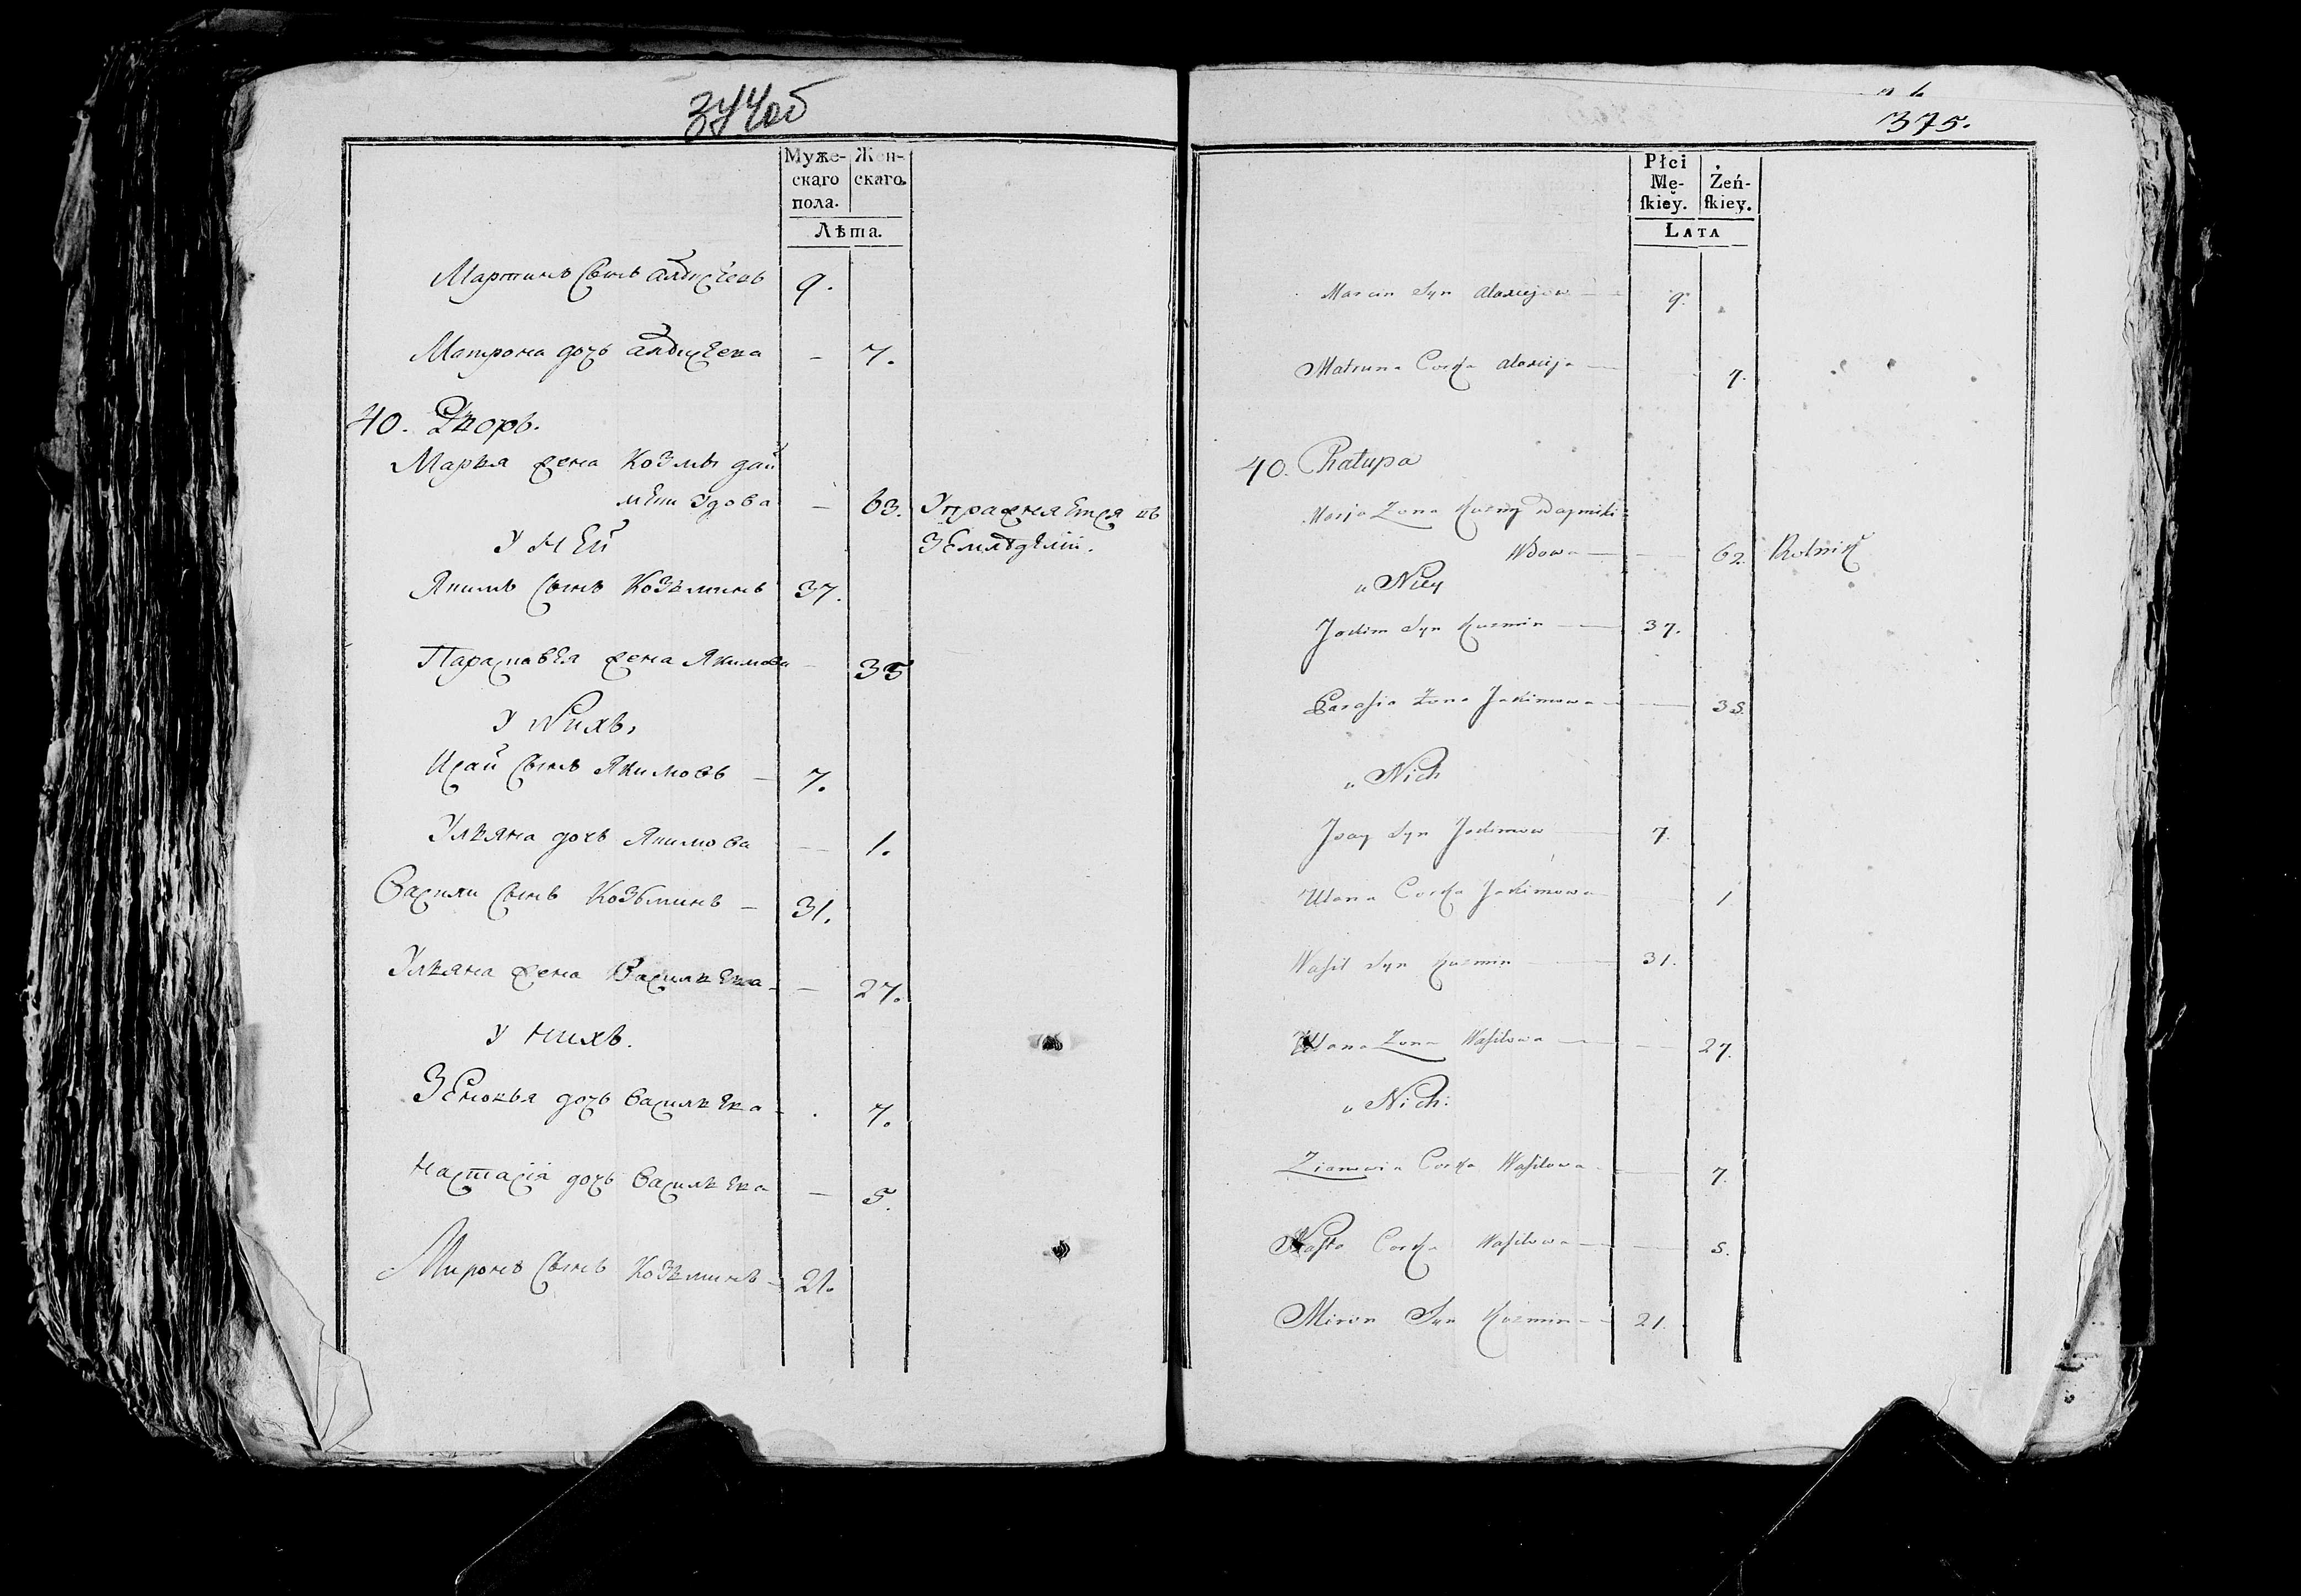 374об
Муже-
скаго
пола.
Жен-
скаго.
Лѣта.
Мартинъ сынъ алексѣевъ 9.
Матрона дочь алексѣева – 7.
40. Дворъ.
Марья жена Козмы дай
мѣти удова – 63. Упражняется въ
у ней земледѣлiи.
Якимъ сынъ Козьминъ 37.
Парасковѣя жена Якимова – 35
у нихъ,
Исай сынъ Якимовъ – 7.
Ульяна дочь Якимова – 1.
Василии сынъ Козьминъ – 31.
Ульяна жена Васильева – 27.
у нихъ.
Зеновья дочь Васильева 7.
настасiя дочь Васильева – 5.
Миронъ сынъ Козьминъ – 21.
375.
Płci
Mę-
ſkiey.
Żeń-
ſkiey.
LATA
Marcin Syn Alaxiejow 9.
Matruna Corka Alaxieja 7.
40. Chałupa
Marja Zona Kuzmy
Wdowa 62. Rolnik
u Niey
Jakim Syn Kuzmin 37.
Parasia Zona Jakimowa 35.
u Nich
Jsay Syn Jakimow 7.
Ulana Corka Jakimowa 1
Wasil Syn Kuzmin 31.
Ulana Zona Wasilowa 27.
u Nich:
Zianowia Corka Wasilowa 7.
Nasta Corka Wasilowa 5.
Miron Syn Kuzmin 21.